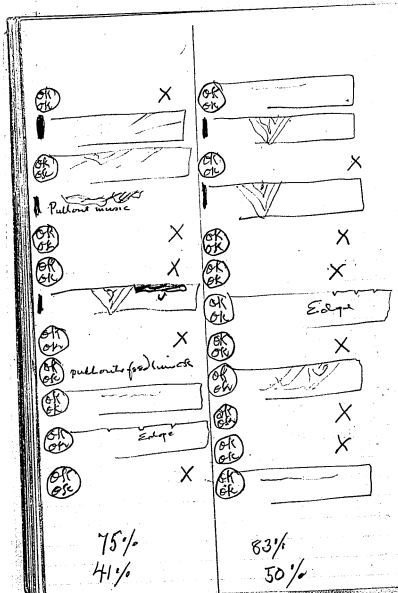 OK
OK
X
OK
OK
Pullout music
OK
OK
X
OK
OK
X
OK
OK
X
OK
OK
OK
OK
OK
OK
Edge
OK
OK
X
75%
41%
OK
OK
OK
OK
X
OK
OK
X
OK
OK
X
OK
OK
Edge
OK
OK
X
OK
OK
OK
OK
X
OK
OK
X
OK
OK
83%
50%